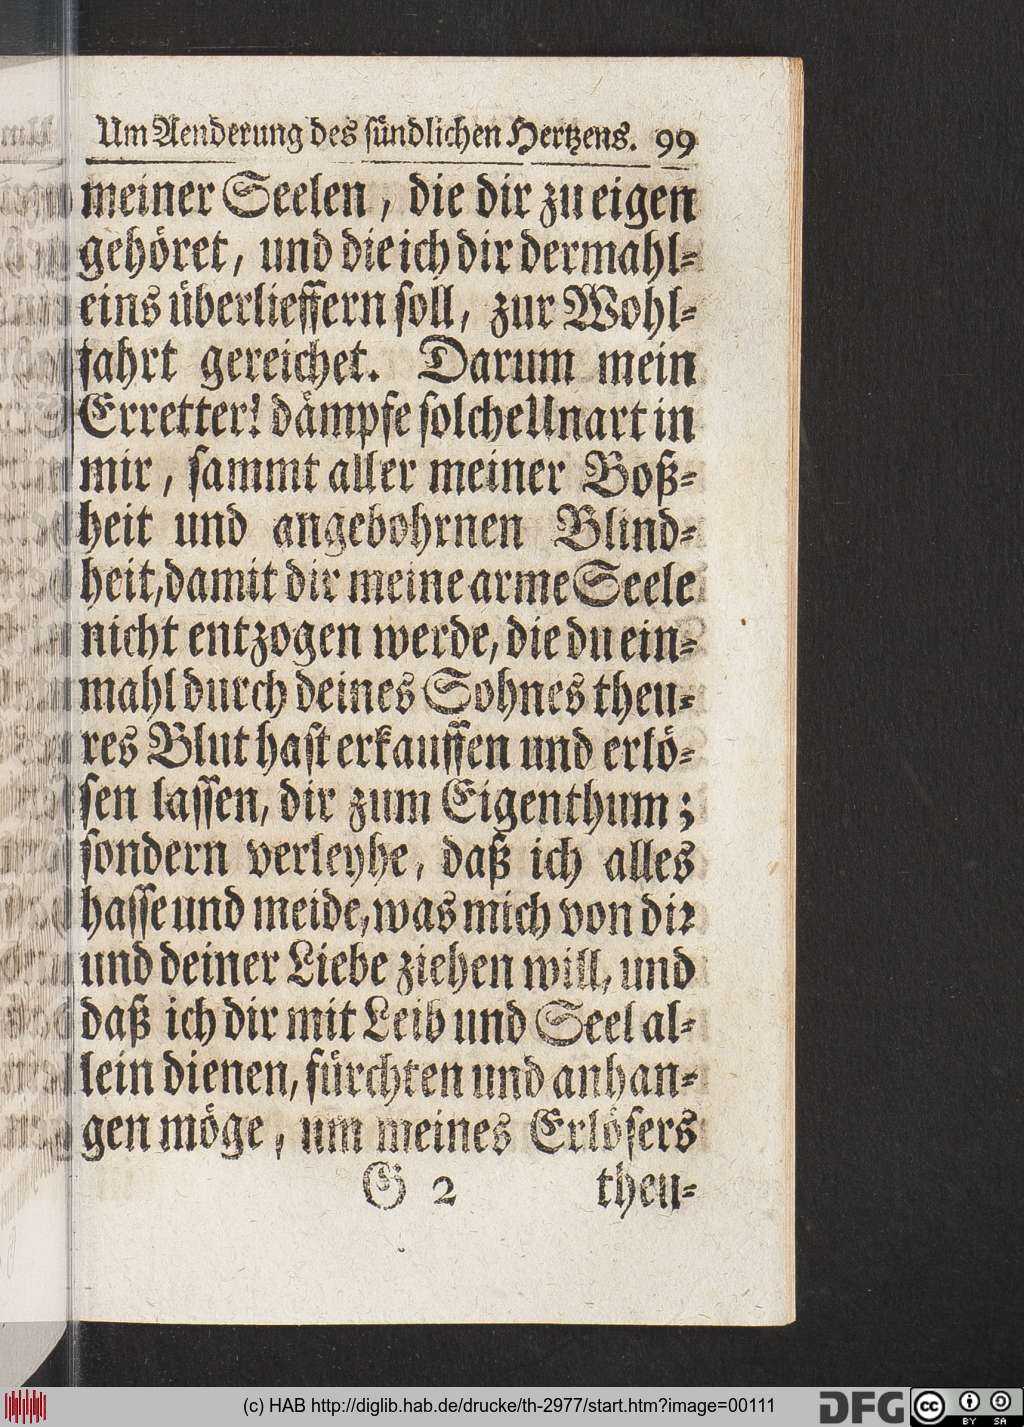 Um Aenderung des sündlichen Hertzens. 99
meiner Seelen, die dir zu eigen
gehöret, und die ich dir dermahl-
eins überlieffern soll, zur Wohl-
fahrt gereichet. Darum mein
Erretter! dämpfe solche Unart in
mir, sammt aller meiner Boß-
heit und angebohrnen Blind-
heit, damit dir meine arme Seele
nicht entzogen werde, die du ein-
mahl durch deines Sohnes theu-
res Blut hast erkauffen und erlö-
sen lassen, dir zum Eigenthum;
sondern verleyhe, daß ich alles
hasse und meide, was mich von dir
und deiner Liebe ziehen will, und
daß ich dir mit Leib und Seel al-
lein dienen, fürchten und anhan-
gen möge, um meines Erlösers
G 2 theu-
(c) HAB http://diglib.hab.de/drucke/th-2977/start.htm?image=00111
DFG cc BY SA